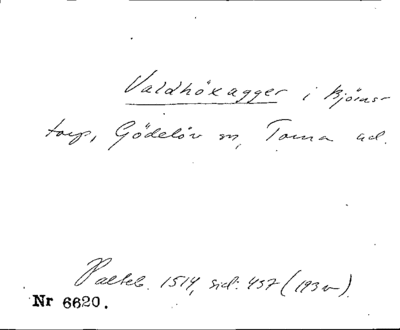 Valdhöxagger i Björns-
torp, Gödelöv sn, Torna hd.
Palteb. 1514, sid. 457 (193 v).
Nr 6620.